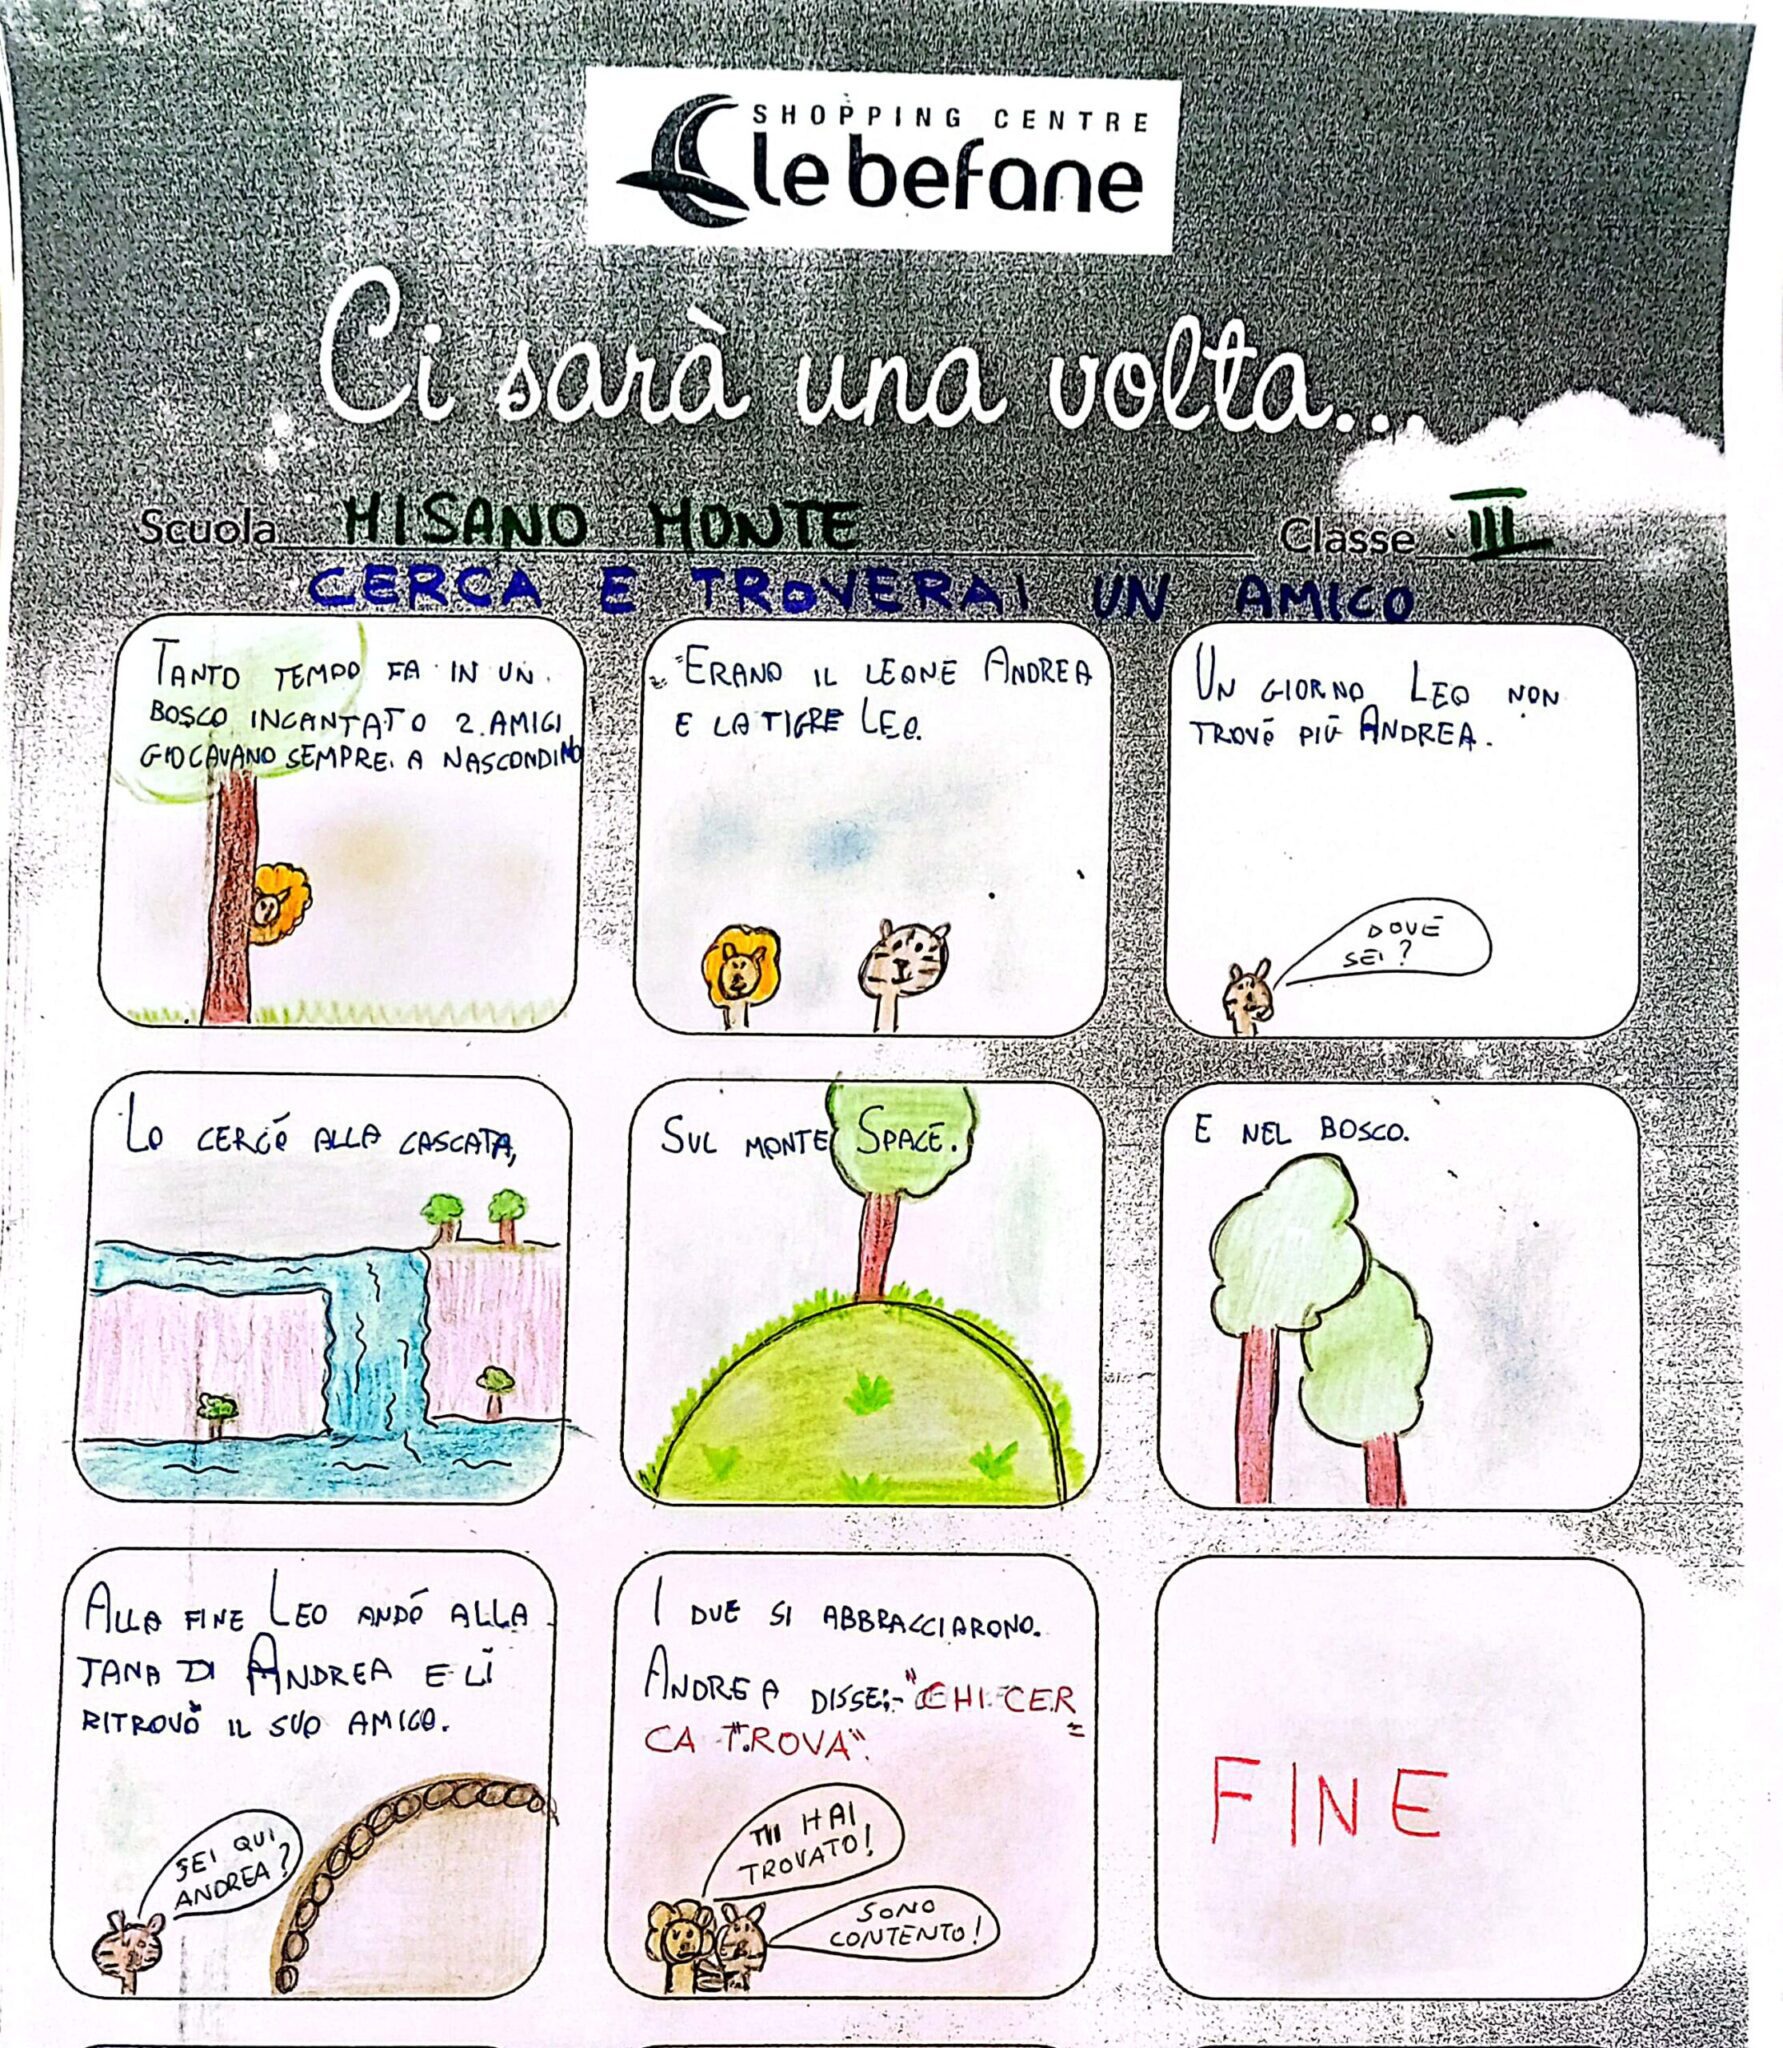 SHOPPING CENTRE
le befane
Ci sarà una volta...
Scuola MISANO MONTE Classe III
CERCA E TROVERAI UN AMICO
TANTO TEMPO FA IN UN
BOSCO INCANTATO 2 AMIGI
GIOCAVANO SEMPRE A NASCONDINO
ERANO IL LEONE ANDREA
E LA TIGRE LEO.
UN GIORNO LEO NON
TROVÓ PIÙ ANDREA.
DOVE
SEI?
LO CERCÓ ALLA CASCATA,
SUL MONTE SPACE.
E NEL BOSCO.
ALLA FINE LEO ANDÓ ALLA
TANA DI ANDREA E LÌ
RITROVÒ IL SUO AMICO.
SEI QUI
ANDREA?
I DUE SI ABBRACCIARONO.
ANDREA DISSE:-"CHI CER
CA TROVA".
MI HAI
TROVATO!
SONO
CONTENTO!
FINE